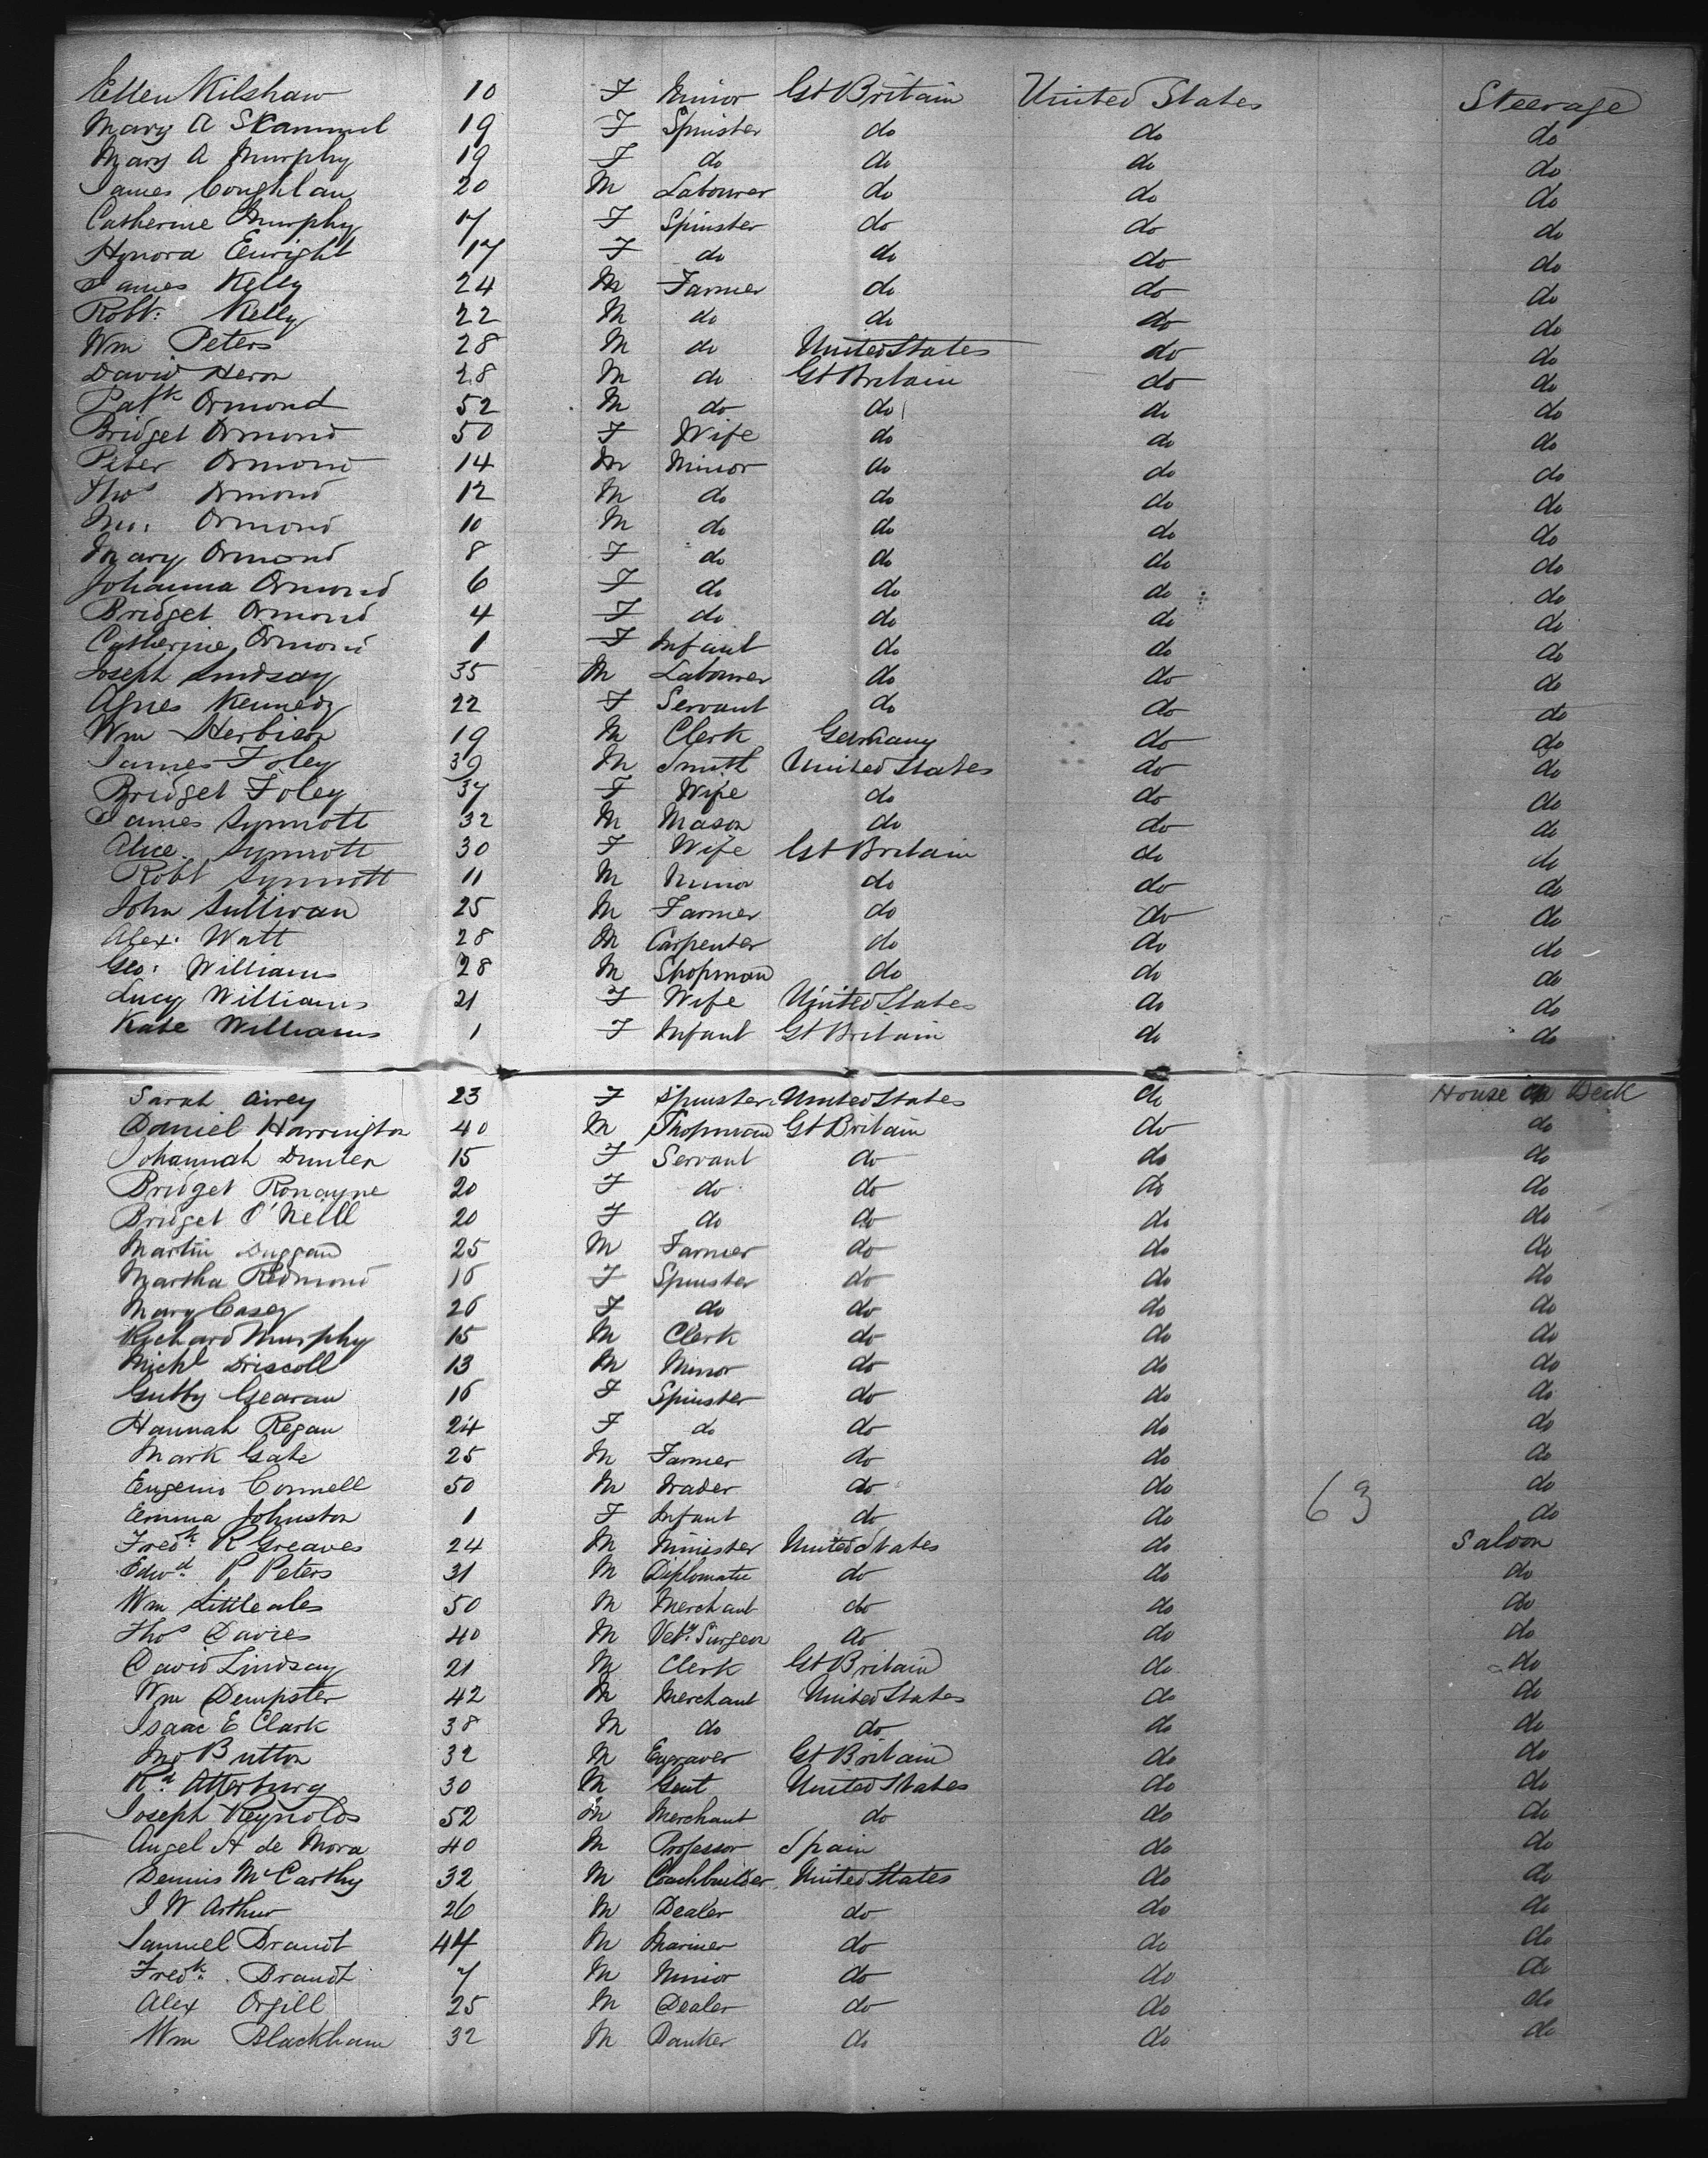 Ellen Kilshaw 10 F Minor Gt Britain United States Steerage
Mary A Skammel 19 F Spinster do do do
Mary A Murphy 19 F do do do do
James Coughlan 20 M Labourer do do do
Catherine Murphy 17 F Spinster do do do
Honora Enright 17 F do do do do
James Kelly 24 M Farmer do do do
Robt. Kelly 22 M do do do do
Wm Peters 28 M do United States do do
David Heron 28 M do Gt Britain do do
Patk Ormond 52 M do do do do
Bridget Ormond 50 F Wife do do do
Peter Ormond 14 M Minor do do do
Thos Ormond 12 M do do do do
Jno. Ormond 10 M do do do do
Mary Ormond 8 F do do do do
Johanna Ormond 6 F do do do do
Bridget Ormond 4 F do do do do
Catherine Ormond 1 F Infant do do do
Joseph Lindsay 35 M Labourer do do do
Agnes Kennedy 22 F Servant do do do
Wm Herbison 19 M Clerk Germany do do
James Foley 39 M Smith United States do do
Bridget Foley 37 F Wife do do do
James Synnott 32 M Mason do do do
Alice Synnott 30 F Wife Gt Britain do do
Robt Synnott 11 M Minor do do do
John Sullivan 25 M Farmer do do do
Alex. Watt 28 M Carpenter do do do
Geo. Williams 28 M Shopman do do do
Lucy Williams 21 F Wife United States do do
Kate Williams 1 F Infant Gt Britain do do
Sarah Airey 23 F Spinster United States do House on Deck
Daniel Harrington 40 M Shopman Gt Britain do do
Johannah Dunlea 15 F Servant do do do
Bridget Ronayne 20 F do do do do
Bridget O'Neill 20 F do do do do
Martin Duggan 25 M Farmer do do do
Martha Redmond 16 F Spinster do do do
Mary Casey 26 F do do do do
Richard Murphy 15 M Clerk do do do
Michl Driscoll 13 M Minor do do do
Gearan 16 F Spinster do do do
Hannah Regan 24 F do do do do
Mark Gate 25 M Farmer do do do
Eugenio Connell 50 M Trader do do do
Emma Johnston 1 F Infant do do 63 do
Fredk R Greaves 24 M Minister United States do Saloon
Edwd P Peters 31 M Diplomatic do do do
Wm Littleales 50 M Merchant do do do
Thos Davies 40 M Vety Surgeon do do do
David Lindsay 21 M Clerk Gt Britain do do
Wm Dempster 42 M Merchant United States do do
Isaac E Clark 38 M do do do do
Jno Button 32 M Engraver Gt Britain do do
Rd Atterbury 30 M Gent United States do do
Joseph Reynolds 52 M Merchant do do do
Angel H de Mora 40 M Professor Spain do do
Dennis McCarthy 32 M Coachbuilder United States do do
J W Arthur 26 M Dealer do do do
Samuel Brandt 44 M Mariner do do do
Fredk. Brandt 7 M Minor do do do
Alex Orgill 25 M Dealer do do do
Wm Blackham 32 M Banker do do do